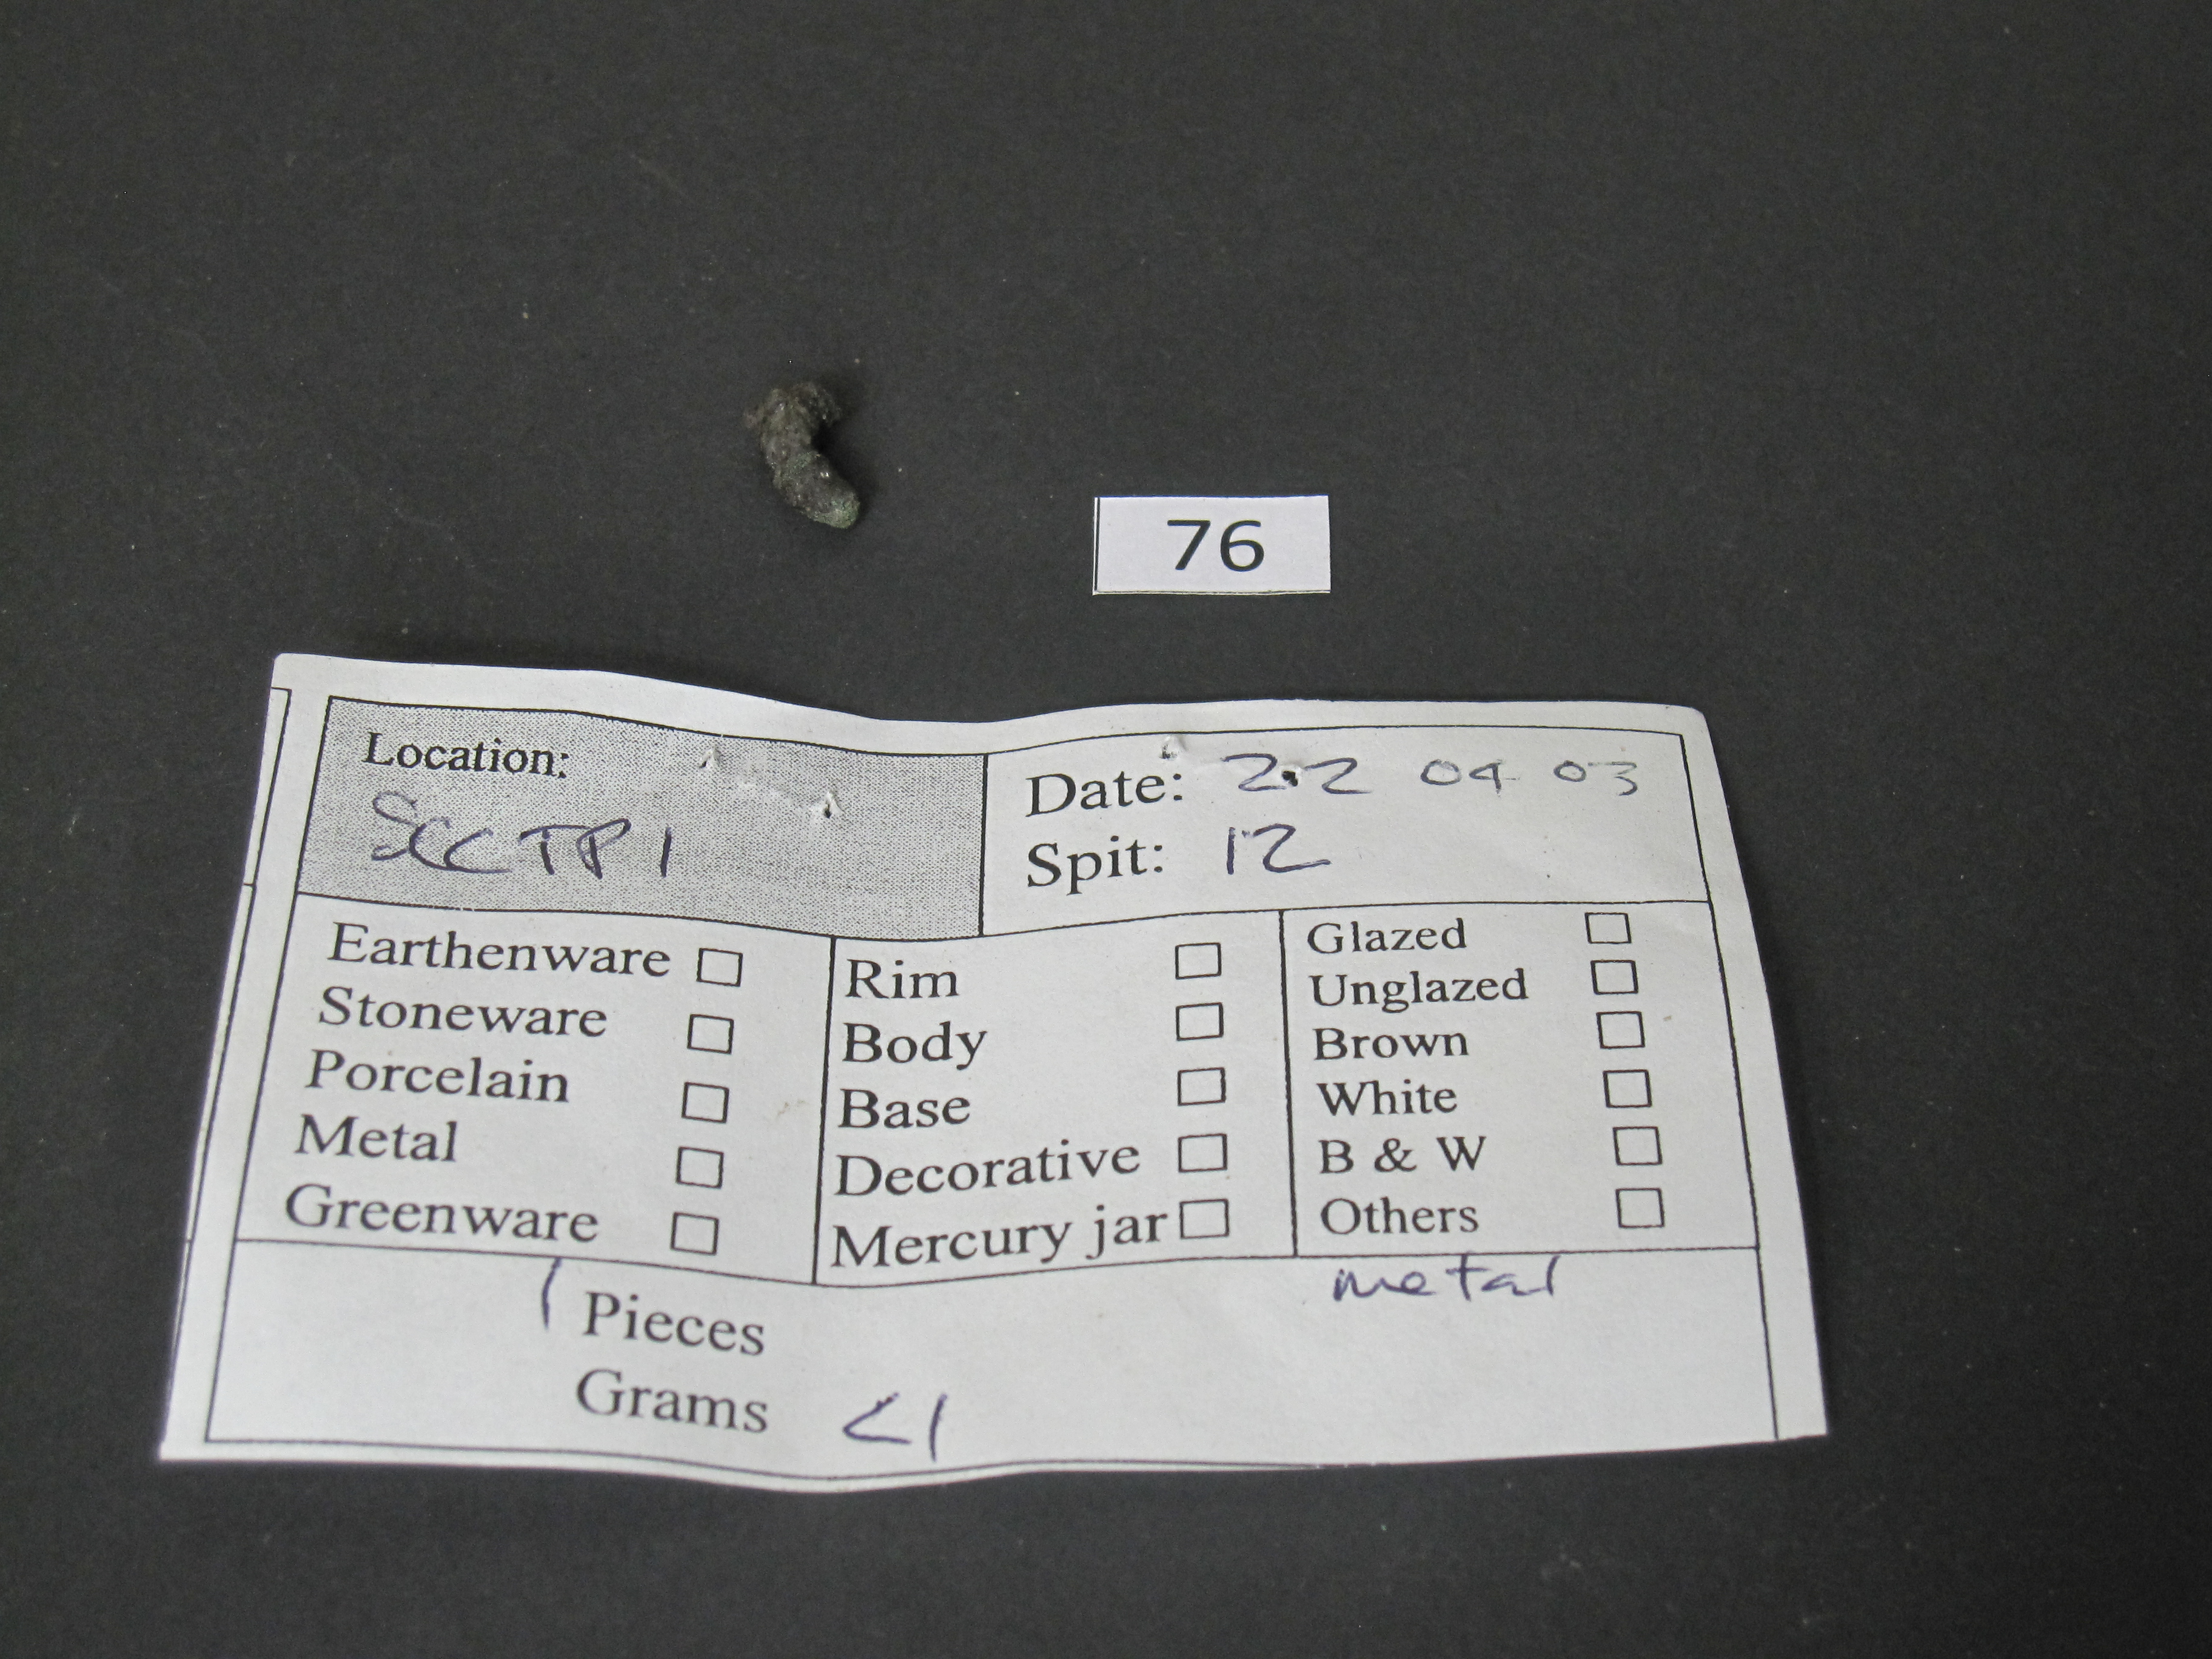 76
Location:
SCC TP 1
Date: 22 04 03
Spit: 12
Earthenware
Stoneware
Porcelain
Metal
Greenware
Rim
Body
Base
Decorative
Mercury jar
Glazed
Unglazed
Brown
White
B & W
Others
1 Pieces
metal
Grams <1